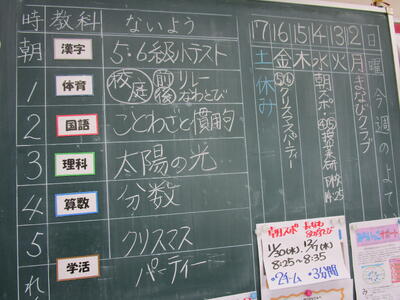 時 教科 ないよう
朝 漢字 5・6級小テスト
1 体育 校庭 前後 リレー なわとび
2 国語 ことわざと慣用句
3 理科 太陽の光
4 算数 分数
5 学活 クリスマスパーティー
今週のよて
日 曜
12 月 まなびクラブ
13 火
14 水 朝スポ
15 木
16 金 クリスマスパーティ
17 土 休み
朝スポ
11/30(水)、12/7(水)
8:25〜8:35
・2チーム ・3分間